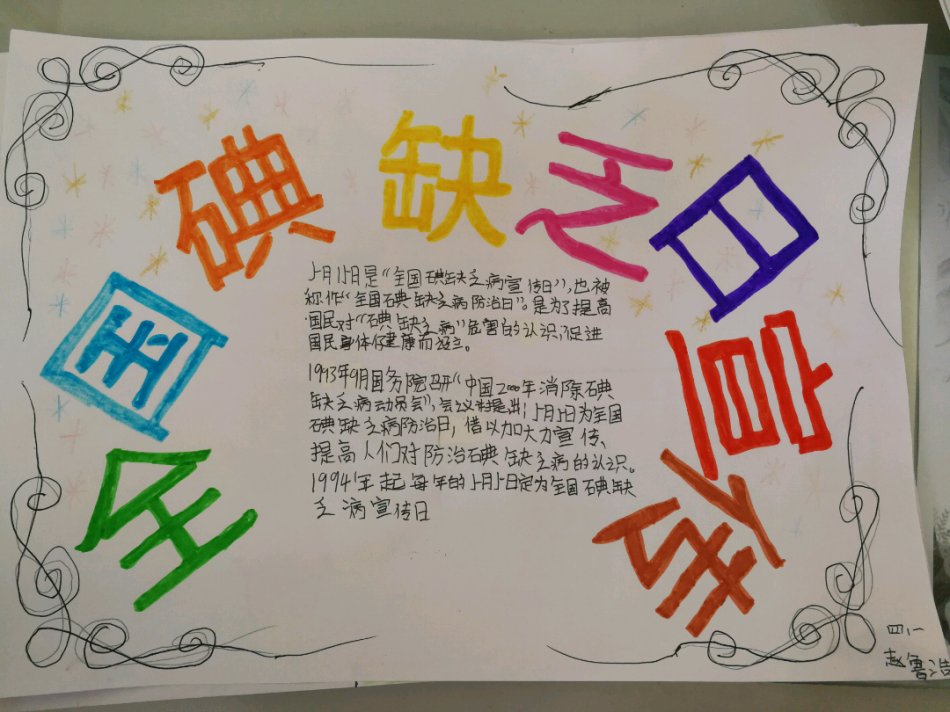 全国碘缺乏日宣传
5月15日是“全国碘缺乏病宣传日”，也被
称作“全国碘缺乏病防治日”。是为了提高
国民对“碘缺乏病”危害的认识，促进
国民身体健康而设立。
1993年9月国务院召开“中国2000年消除碘
缺乏病动员会”，会议提出，5月5日为全国
碘缺乏病防治日，借以加大力宣传、
提高人们对防治碘缺乏病的认识。
1994年起每年的5月5日定为全国碘缺
乏病宣传日
四一